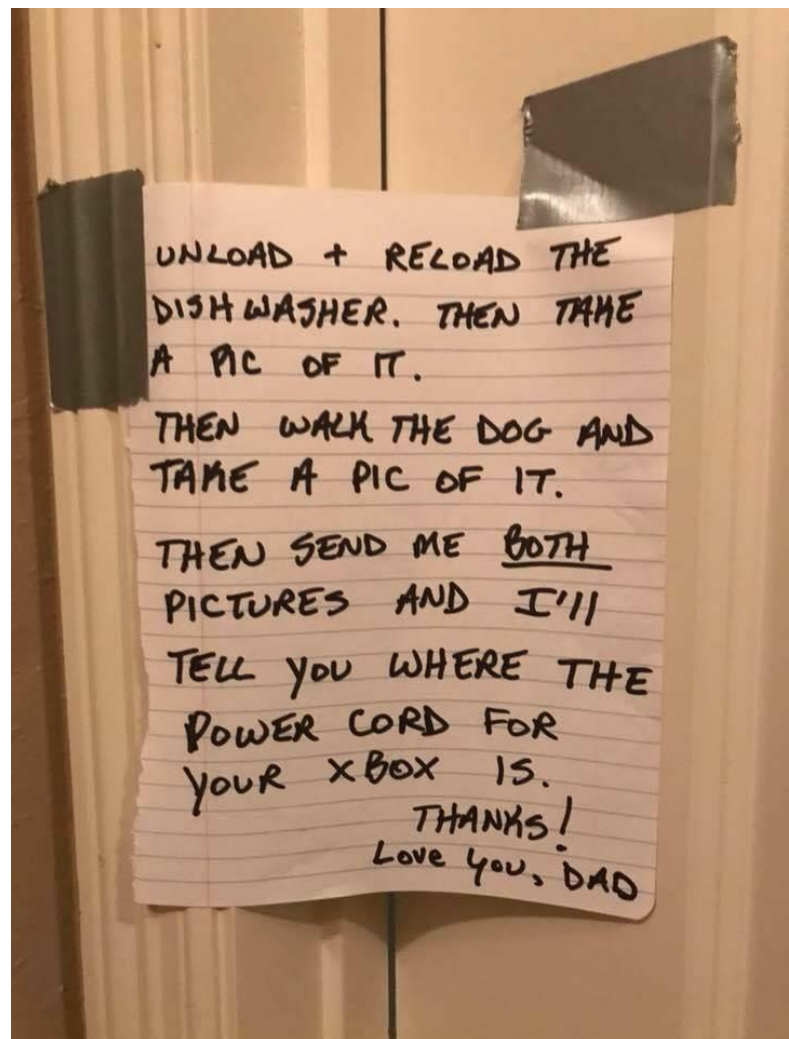 UNLOAD + RELOAD THE
DISHWASHER. THEN TAKE
A PIC OF IT.
THEN WALK THE DOG AND
TAKE A PIC OF IT.
THEN SEND ME BOTH
PICTURES AND I'll
TELL YOU WHERE THE
POWER CORD FOR
YOUR XBOX IS.
THANKS!
Love you, DAD